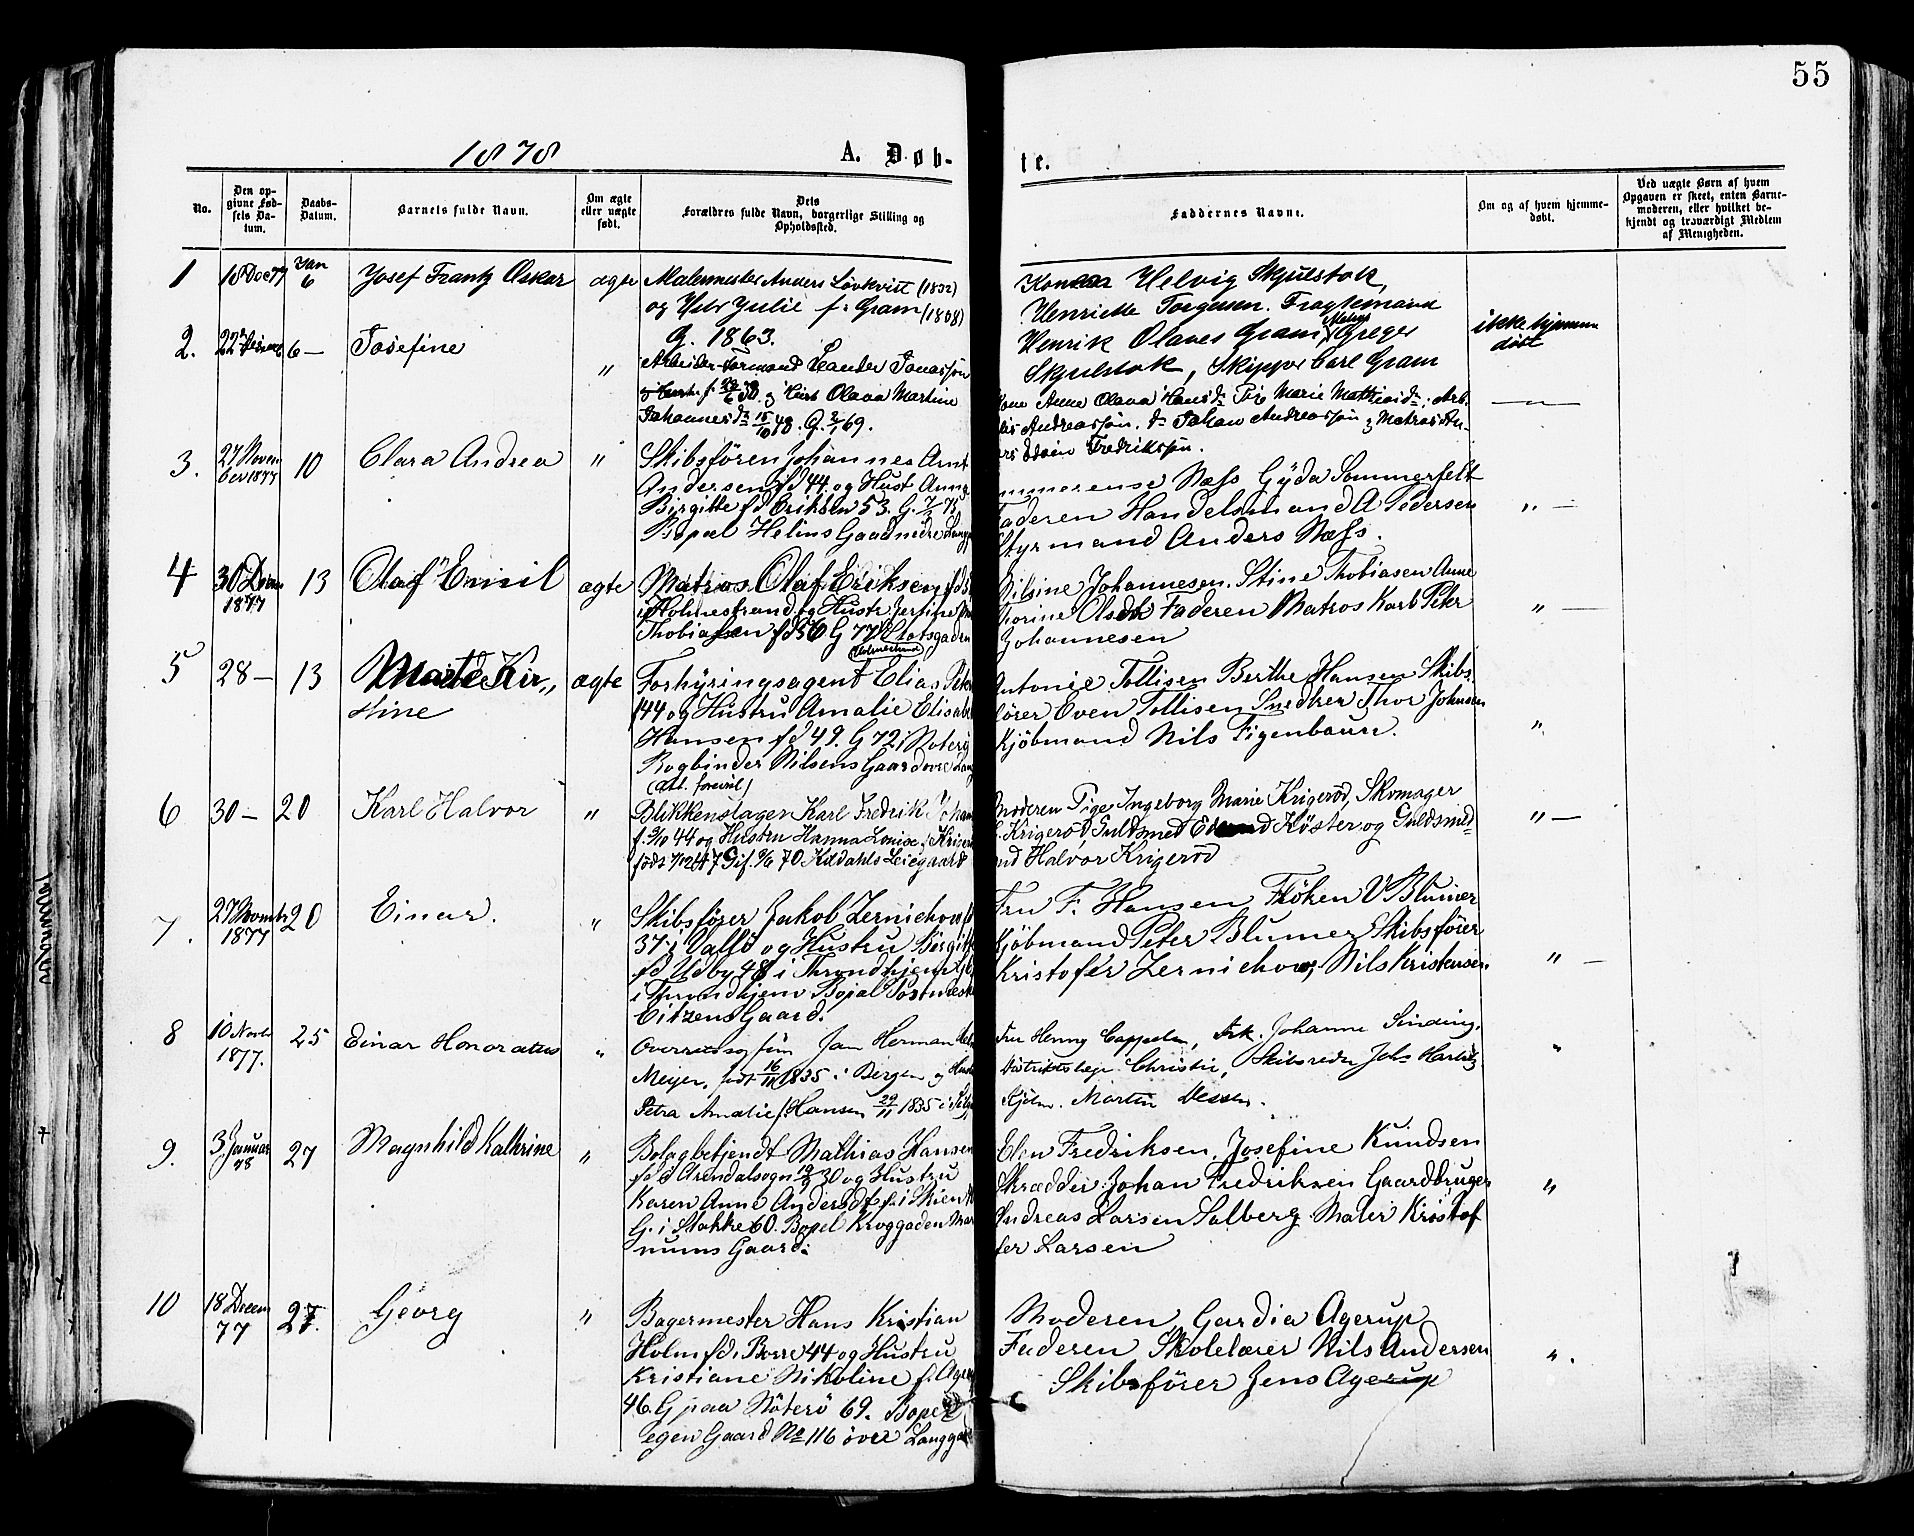 55
1878
A. Døb-
te.
No.
Den op-
givne Fød-
sels Da-
tum.
Daabs-
Datum.
Barnets fulde Navn.
Om ægte
eller uægte
født.
Dets
Forældres fulde Navn, borgerlige Stilling og
Opholdssted.
Faddernes Navne.
Om og af hvem hjemme-
døbt.
Ved uægte Børn af hvem
Opgaven er skeet, enten Barne-
moderen, eller hvilket be-
kjendt og troværdigt Medlem
af Menigheden.
1
18 Dec 77
Jan
6
Josef Frantz Oskar
ægte
Malermester Anders Lövkvist (1832)
og Julie f: Gram (1838)
G. 1863.
Helvig Skjulstok,
Henriette Torgersen. Fragtemand
Henrik Olaves Gram, Greger
Skjulstok, Skipper Carl Gram
ikke hjemme
døbt
2.
22
6 —
Josefine
"
Arbeider-Formand Leander Jonassøn
og Hustr Olava Martine
Johannesdr 15/10 48. G. 69.
Kone Anne Olava Hansdr Pige Marie Mathiasdr, Arb.
Andreassøn. d: Johan Andreassøn og Matros An-
Fredrikssøn.
— " —
3.
27 Novem
ber 1877
10
Clara Andrea
"
Skibsfören Johannes Arnt
Andersen fd 44 og Hust Anna
Birgitte fd Eriksen 53. G. 7/1 75
Bopæl Helms Gaard nedre Lang
Næss Gyda Sommerfelt
Faderen Handelsmand A Pedersen
Styrmand Anders Næss.
" —
4
30 Decem
1877
13
Olaf Emil
ægte
Matros Olaf Eriksen fd
i Holmestrand og Hustr Jerfine
Thobiasen fd 56 G 77 Slotsgaden
Holmestrand
Nilsine Johannesen. Stine Thobiasen Anne
Thorine Olsdt Faderen Matros Karl Peter
Johannesen
" —
5
28 —
13
Marte Kir„
stine
ægte
Forhyringsagent Elias Peter
144 og Hustru Amalie Elisabe
Hansen fd 49. G 72 i Noterø
Bogbinder Nilsens Gaard øvre Lang
Antonie Tollisen Berthe Hansen Skibs
fører Even Tollisen Snedker Thor Johnsen
Kjöbmand Nils Figenbaum.
"
6
30 —
20
Karl Halvor
"
(att. forevist)
Blikkenslager Karl Fredrik Johan
f. 9/10 44 og Hustru Hanna Louise f Kriger
født 1/12 47 Gif. 9/6 70 Kildahls Leiegaard
Moderen Pige Ingeborg Marie Krigerød, Skomager
Krigerød Guldsmed Köster og Guldsmed-
Halvor Krigerød
" —
7.
27 Novmbr
1877
20
Einar.
"
Skibsfører Jakob Zernichow f
37 i Vallö og Hustru Birgitte
fd Udby 48 i Throndhjem Gift
i Throndhjem Bopæl Postmester
Citzens Gaard.
Fru F. Hansen Frøken V Blumer
Kjöbmand Peter Blumer Skibsfører
Kristofer Zernichow, Nils Kristensen
" —
8
10 Novbr
1877.
25
Einar Honoratus
"
Overretssagfører Jan Herman
Meyer, født 16/11 1835 i Bergen og Hust
Petra Amalie f Hansen 29/11 1835 i
Fru Henny Cappelen, Frk. Johanne Sinding,
Distriktslæge Christie, Skibsreder Johs
Martin
"
9.
3 Januar
78
27
Magnhild Kathrine
"
Bolagbetjendt Mathias Hansen
fd Arendalsogn 30 og Hustru
Karen Anne Andersdt f: i Skien
G. i Stokke 60. Bopel Kroggaden Mar
nums Gaard.
Elen Fredriksen, Josefine Knudsen
Skrædder Johan Fredriksen Gaardbruger
Andreas Larsen Solberg Maler Kristof
fer Larsen
"
10
18 Decem
77
27.
Georg
"
Bagermester Hans Kristian
Holm fd. Borre 44 og Hustru
Kristiane Nikoline f. Ager
46. G paa Nöterö 69. Bopel
egen Gaard No 116 øvre Langga
Moderen, Gardia Agerup
Faderen Skolelærer Nils Andersen
Skibsfører Jens Agerup
".